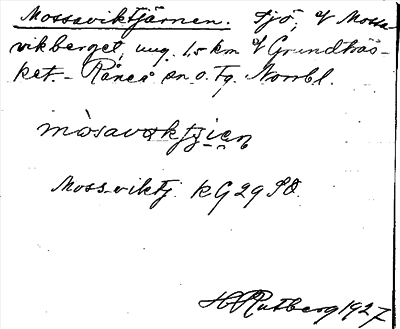 Mossaviktjärnen. Sjö, v/ Mossa-
vikberget, ung. 1,5 km v/ Grundträs-
ket. - Råneå sn o. Tg. Norrbl.
mòsavıktjıɛṇ
Moss-viktj. KG 29 SO.
H. Rutberg 1927